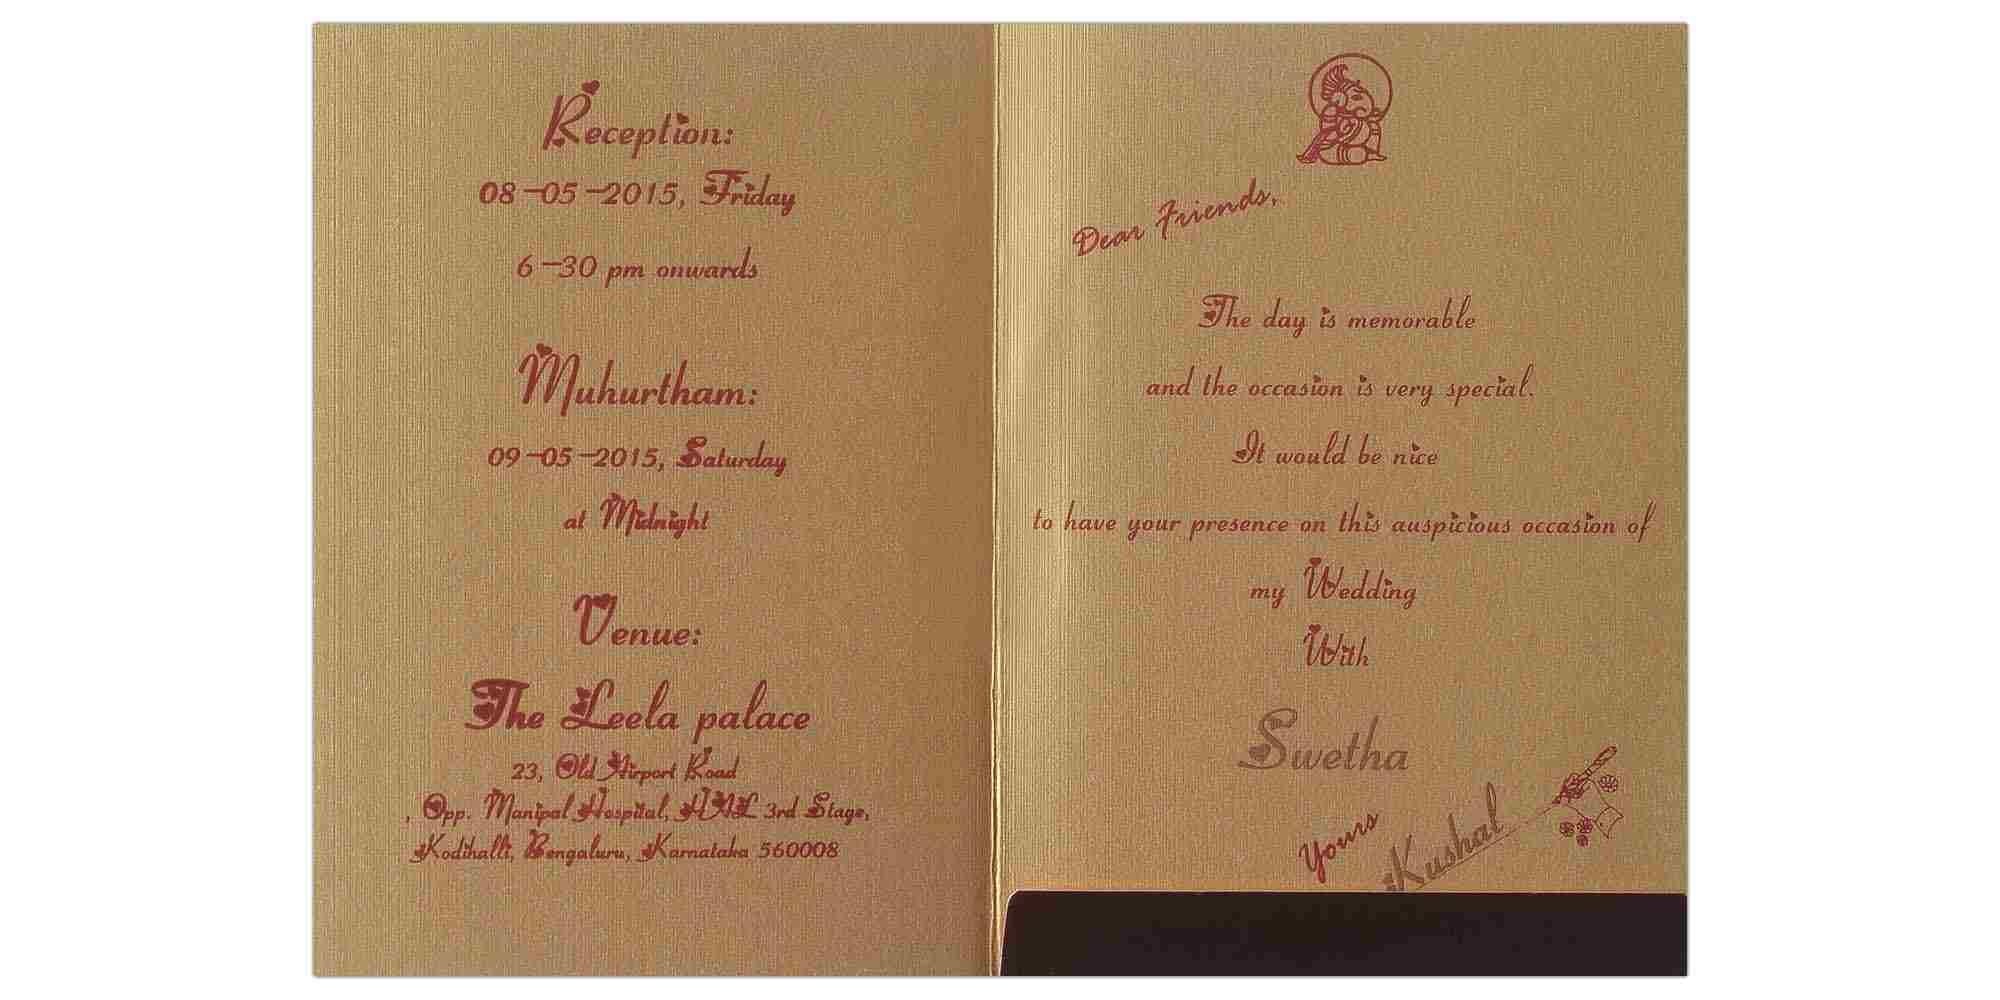 Reception:
08-05-2015, Friday
6-30 pm onwards
Muhurtham:
09-05-2015, Saturday
at Midnight
Venue:
The Leela palace
23, Old Airport Road
, Opp. Manipal Hospital, HAL 3rd Stage,
Kodihalli, Bengaluru, Karnataka 560008
Dear Friends,
The day is memorable
and the occasion is very special.
It would be nice
to have your presence on this auspicious occasion of
my Wedding
With
Swetha
Yours
Kushal